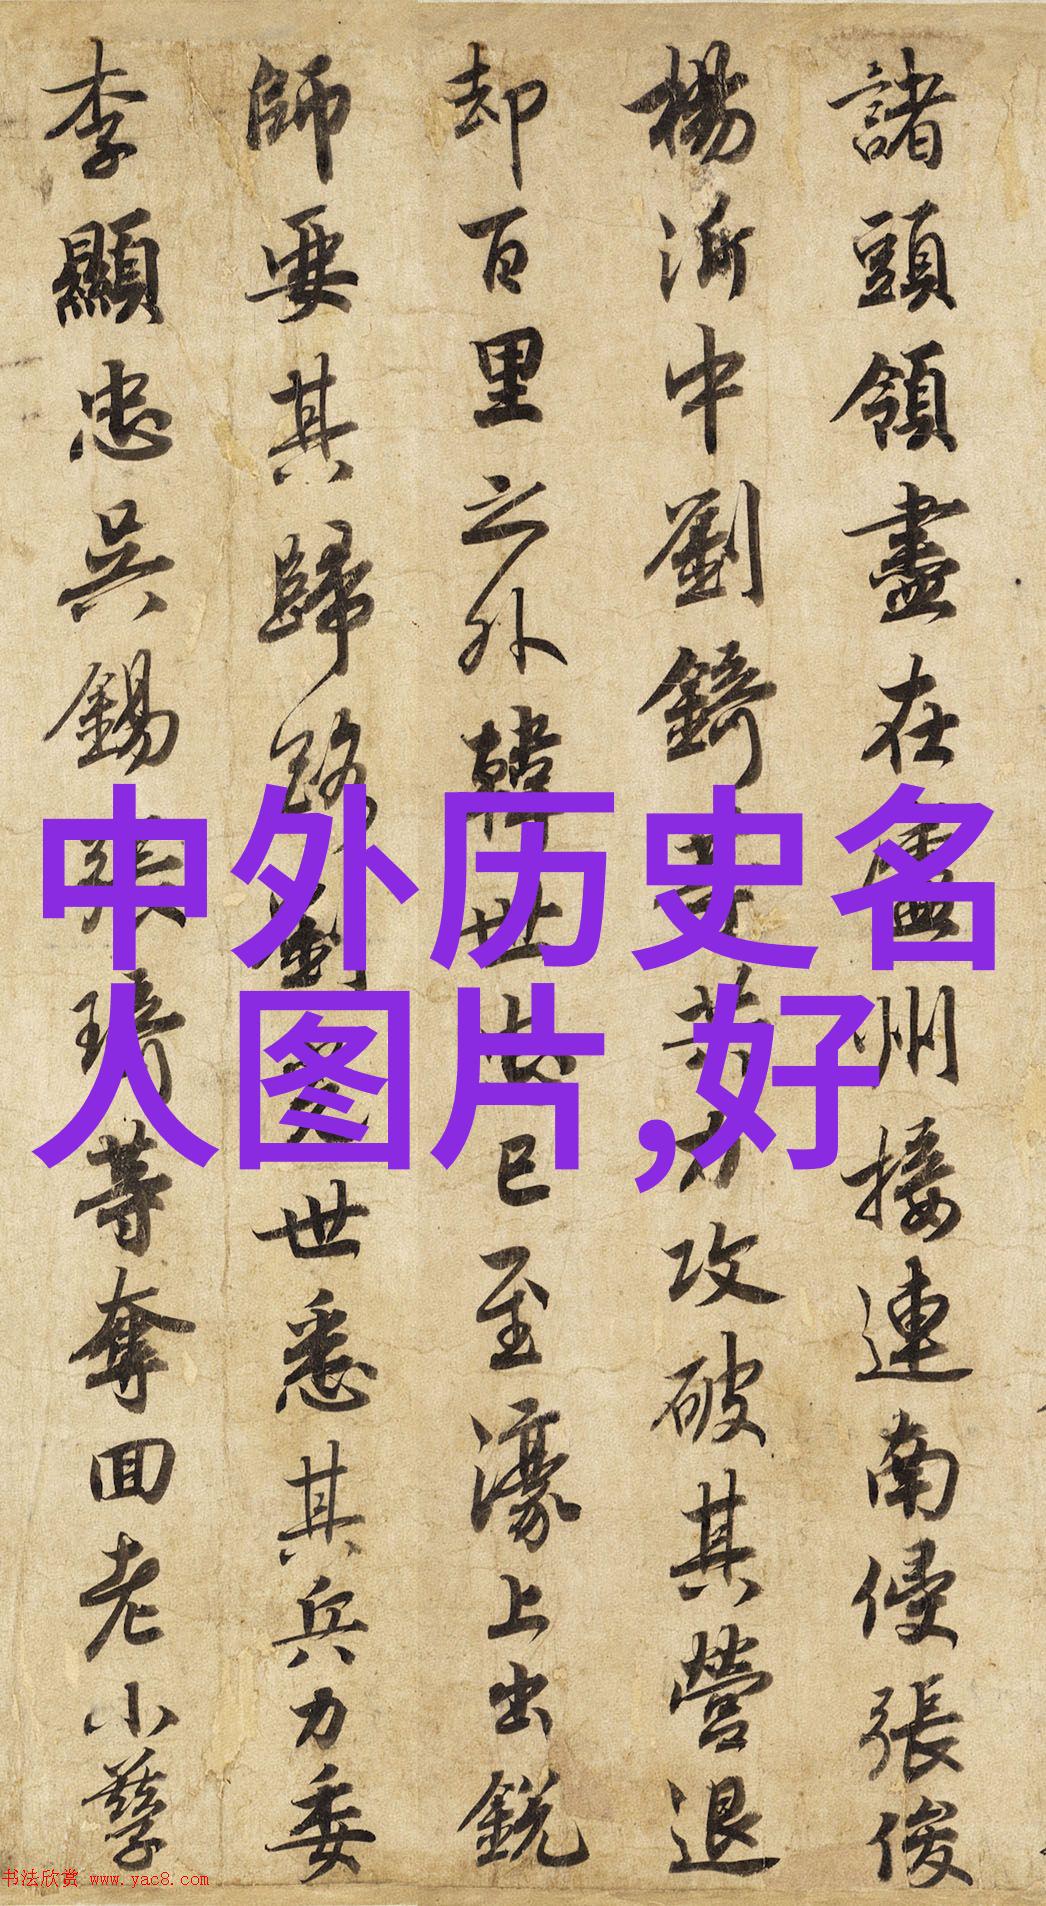 諸頭領盡在廬州接連南侵張俊
楊沂中劉錡等共力攻破其營退
却百里之外韓世忠已至濠上出銳
師要其歸路劉光世悉其兵力委
李顯忠吳錫張琦等奪回老小孳
中外历史名
人图片,好
书法欣赏 www.yac8.com